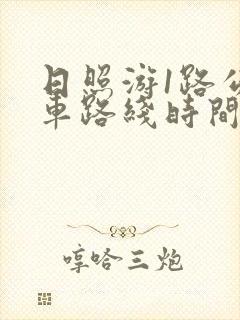 日照游1路公
車路綫時間
哼哈三炮